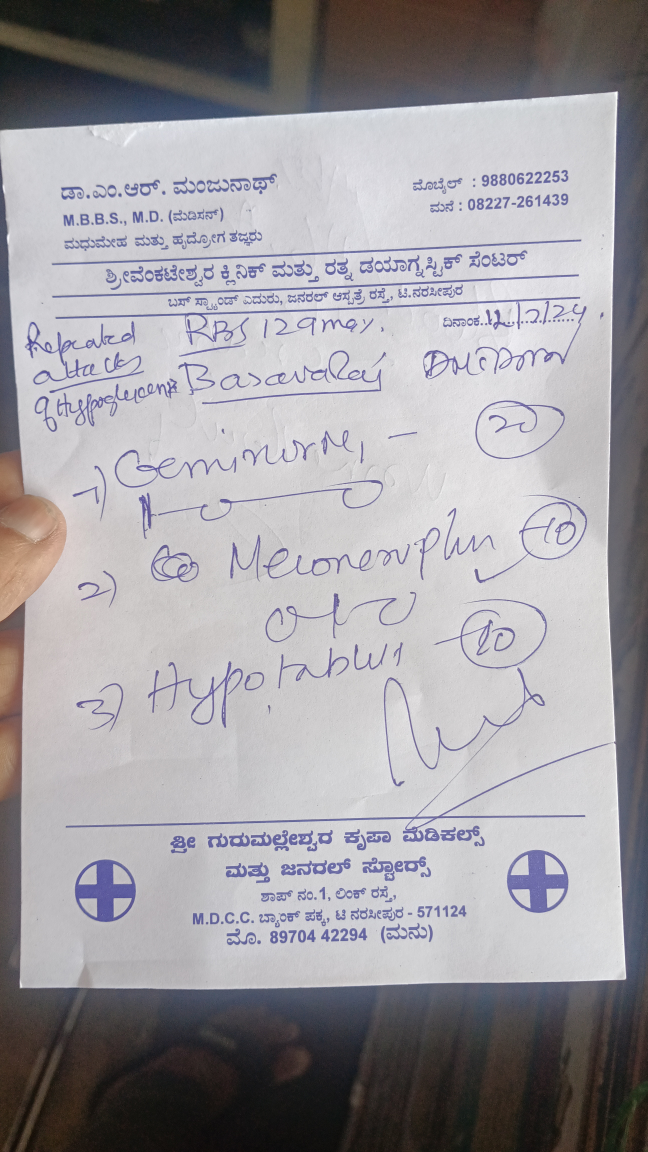 ಡಾ.ಎಂ.ಆರ್. ಮಂಜುನಾಥ್
M.B.B.S., M.D. (ಮೆಡಿಸನ್)
ಮಧುಮೇಹ ಮತ್ತು ಹೃದ್ರೋಗ ತಜ್ಞರು
ಮೊಬೈಲ್ : 9880622253
ಮನೆ : 08227-261439
ಶ್ರೀವೆಂಕಟೇಶ್ವರ ಕ್ಲಿನಿಕ್ ಮತ್ತು ರತ್ನ ಡಯಾಗ್ನಸ್ಟಿಕ್ ಸೆಂಟರ್
ಬಸ್ ಸ್ಟ್ಯಾಂಡ್ ಎದುರು, ಜನರಲ್ ಆಸ್ಪತ್ರೆ ರಸ್ತೆ, ಟಿ.ನರಸೀಪುರ
ದಿನಾಂಕ
Repeated
attacks
of Hypoglycemia
RBS 129
Basavaraj
1) 20
2) 10
3) 10
ಶ್ರೀ ಗುರುಮಲ್ಲೇಶ್ವರ ಕೃಪಾ ಮೆಡಿಕಲ್ಸ್
ಮತ್ತು ಜನರಲ್ ಸ್ಟೋರ್ಸ್
ಶಾಪ್ ನಂ.1, ಲಿಂಕ್ ರಸ್ತೆ,
M.D.C.C. ಬ್ಯಾಂಕ್ ಪಕ್ಕ, ಟಿ ನರಸೀಪುರ - 571124
ಮೊ. 89704 42294 (ಮನು)